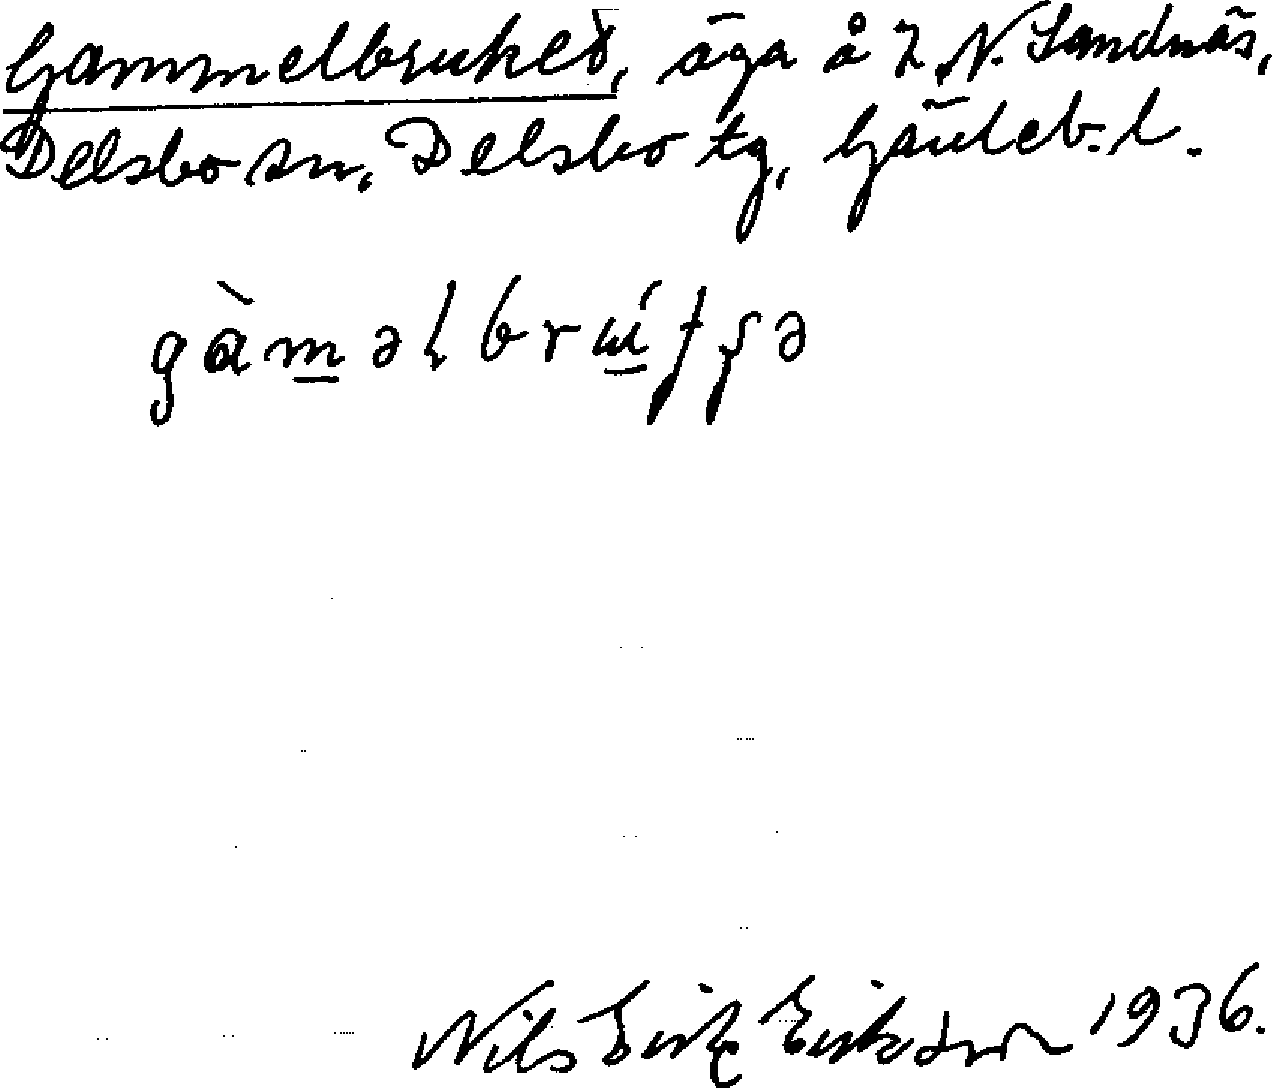 Gammelbruket, äga å 2 N. Sandnäs,
Delsbo sn, Delsbo tg, Gävleb. l.
gàməlbrúʃʂə
Nils Erik Eriksson 1936.